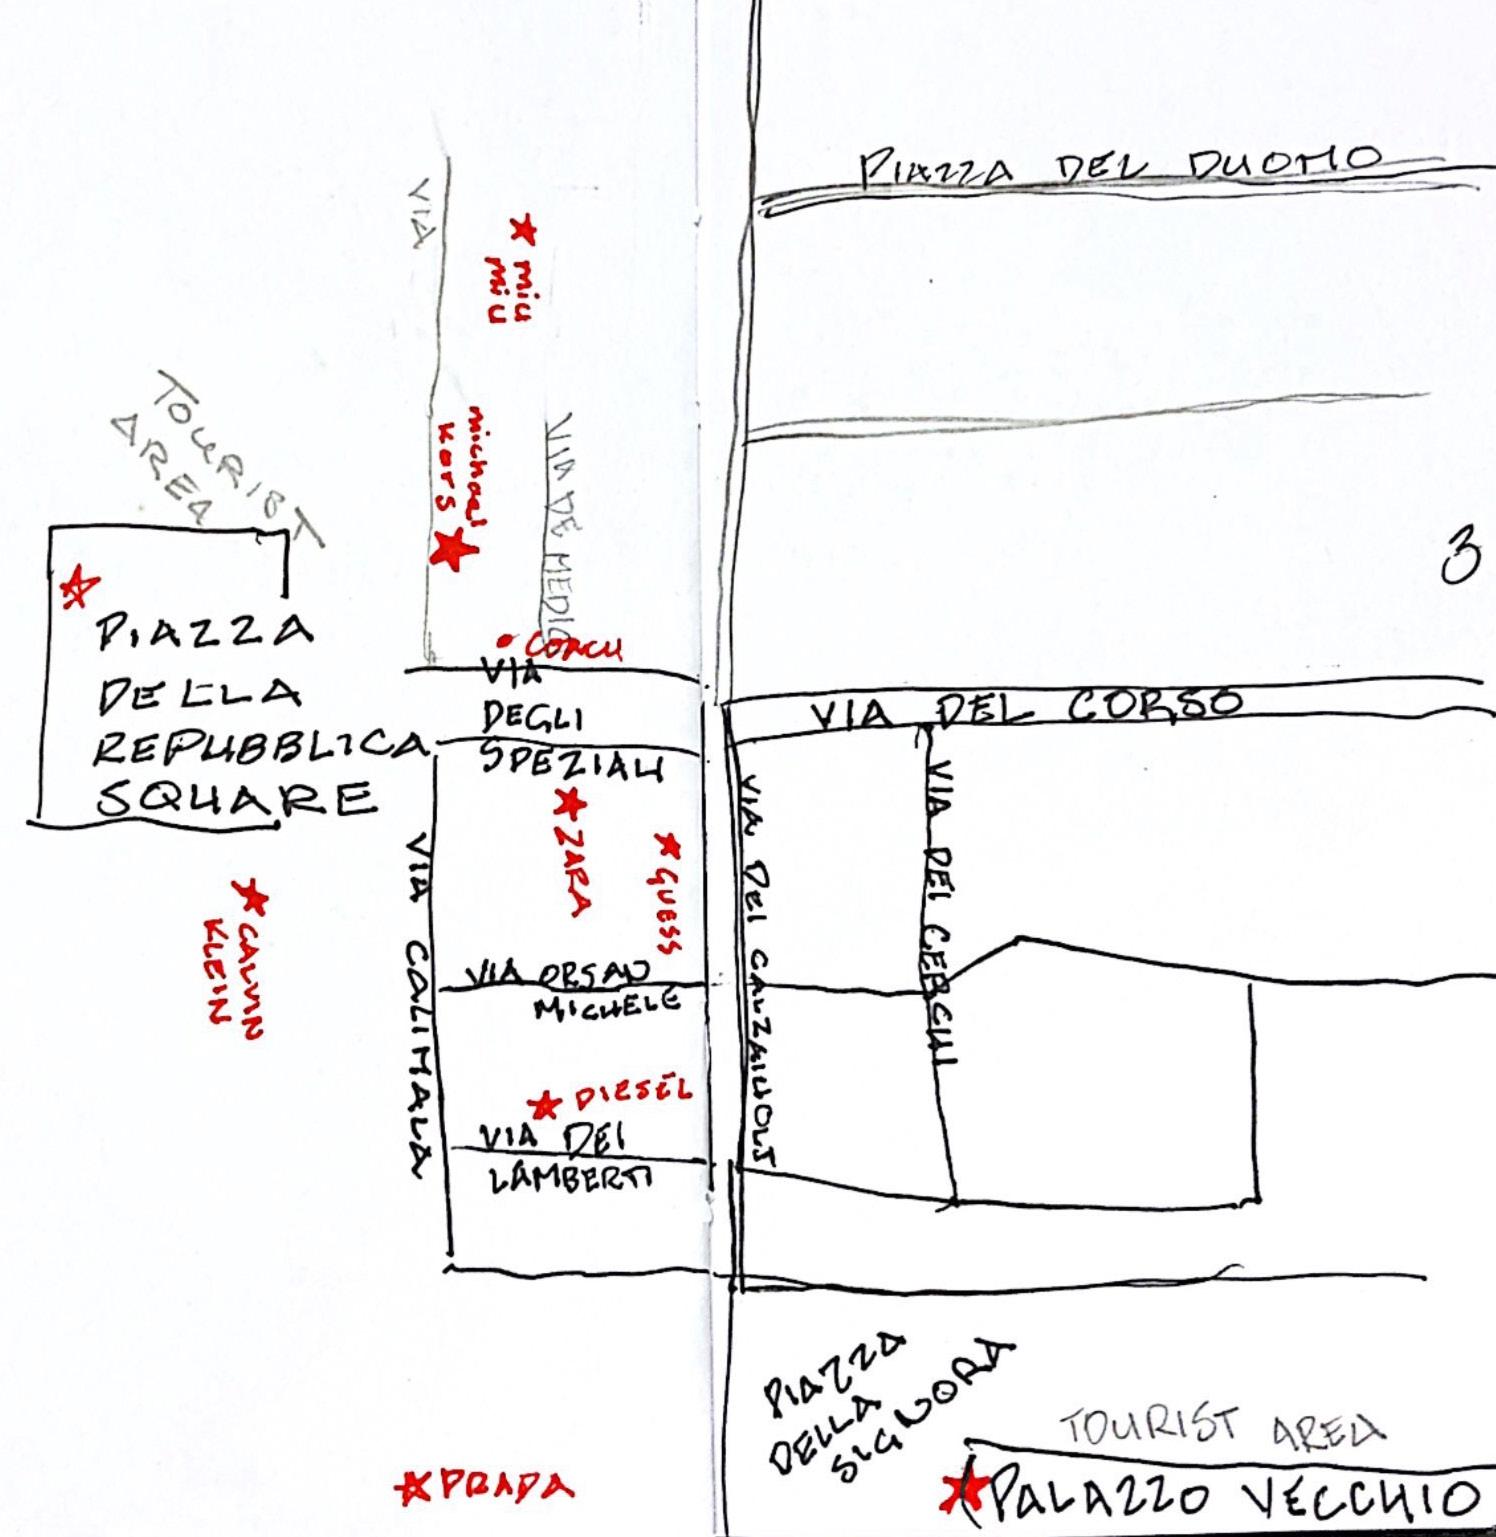 PIAZZA DEL DUOMO
VIA
miu
miu
TOURIST
AREA
michael
KORS
VIA DE MEDIC
3
PIAZZA
DELLA
REPUBBLICA
SQUARE
COACH
VIA
DEGLI
SPEZIALI
VIA DEL CORSO
ZARA
GUESS
VIA CALIMALA
VIA DEI CALZAIUOLI
VIA DEI CERCHI
CALVIN
KLEIN
VIA ORSAN
MICHELE
DIESEL
VIA DEI
LAMBERTI
PIAZZA
DELLA
SIGNORA
TOURIST AREA
PALAZZO VECCHIO
PRADA